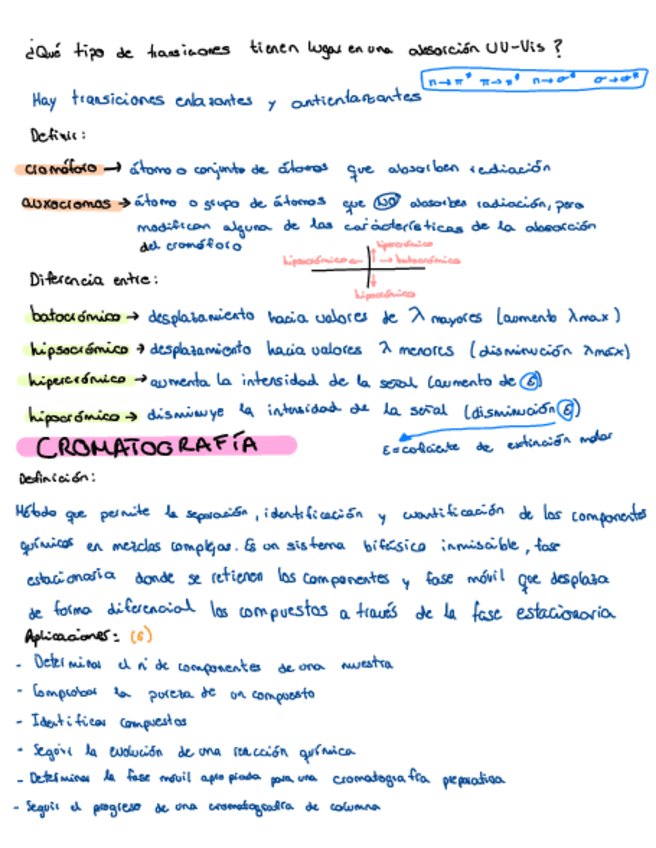 ¿Qué tipo de transiciones tienen lugar en una absorción UV-Vis?
n→π* π→π* n→σ* σ→σ*
Hay transiciones enlazantes y antienlazantes
Definir:
cromóforo → átomo o conjunto de átomos que absorben radiación
auxocromos → átomo o grupo de átomos que NO absorbes radiación, pero
modifican alguna de las carácterísticas de la absorción
del cromóforo
hipercrómico
hipsocrómico ← → batocrómico
hipocrómico
Diferencia entre:
batocrómico → desplazamiento hacia valores de λ mayores (aumento λmax)
hipsocrómico → desplazamiento hacia valores λ menores (disminución λmáx)
hipercrómico → aumenta la intensidad de la señal (aumento de ε)
hipocrómico → disminuye la intensidad de la señal (disminución ε)
ε=coficiente de extinción molar
CROMATOGRAFÍA
Definición:
Método que permite la separación, identificación y cuantificación de los componentes
químicos en mezclas complejas. Es un sistema bifásico inmiscible, fase
estacionaria donde se retienen los componentes y fase móvil que desplaza
de forma diferencial los compuestos a través de la fase estacionaria
Aplicaciones: (6)
- Determinar el nº de componentes de una muestra
- Comprobar la pureza de un compuesto
- Identificar compuestos
- Seguir la evolución de una reacción química
- Determinar la fase movil apropiada para una cromatografía preparativa
- Seguir el progreso de una cromatografía de columna